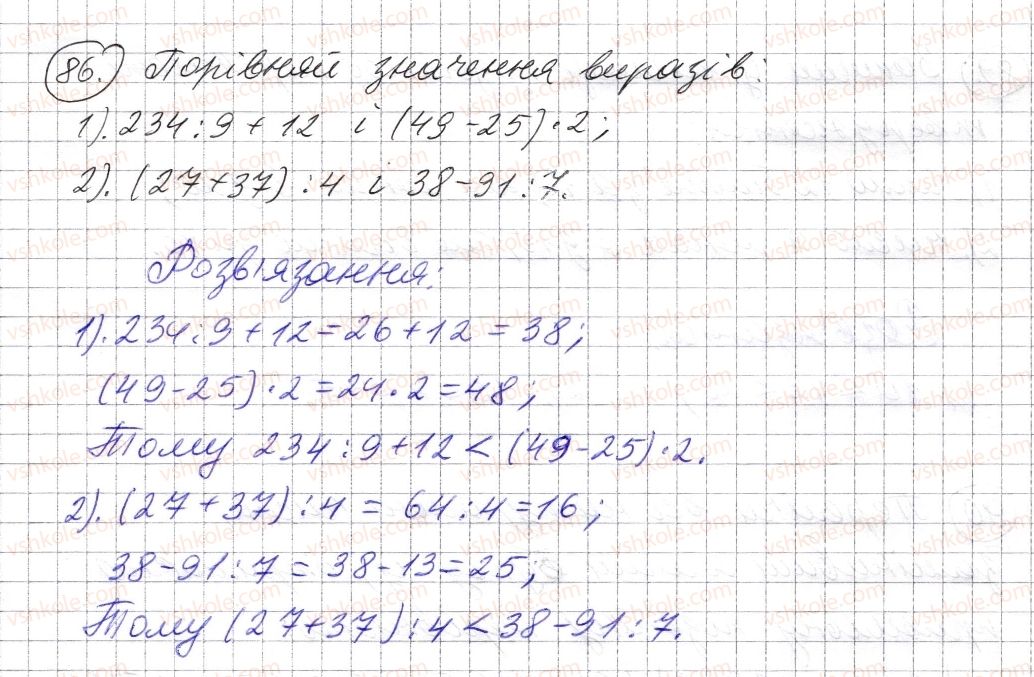 86.) Порівняй значення виразів:
1). 234 : 9 + 12 і (49 - 25) · 2;
2). (27 + 37) : 4 і 38 - 91 : 7.
Розв'язання:
1). 234 : 9 + 12 = 26 + 12 = 38;
(49 - 25) · 2 = 24 · 2 = 48;
Тому 234 : 9 + 12 < (49 - 25) · 2.
2). (27 + 37) : 4 = 64 : 4 = 16;
38 - 91 : 7 = 38 - 13 = 25;
Тому (27 + 37) : 4 < 38 - 91 : 7.
vshkole.com